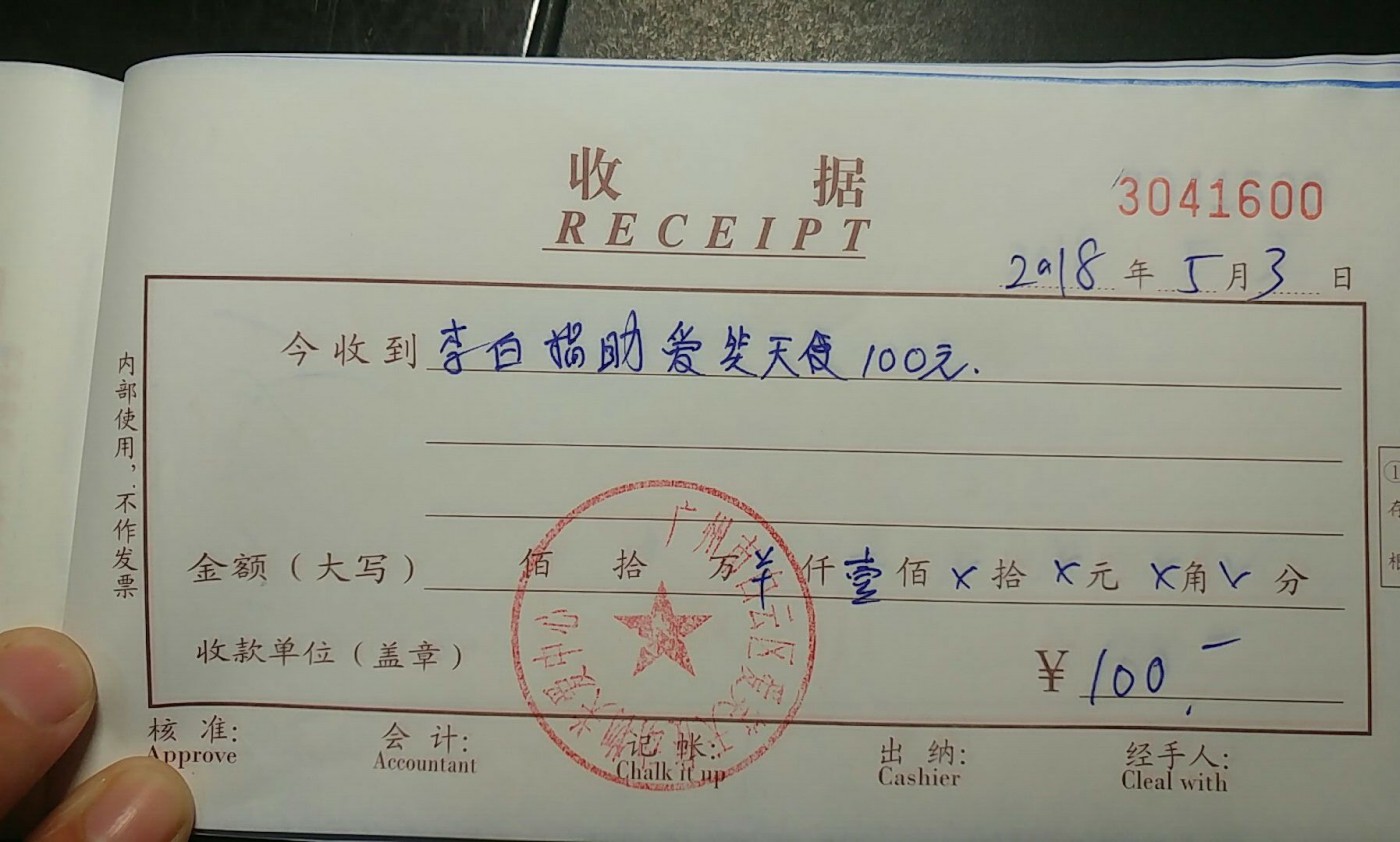 收 据
RECEIPT
3041600
2018 年 5 月 3 日
今收到 李白捐助爱笑天使100元.
内部使用,不作发票
金额（大写） 佰 拾 万 ¥ 仟 壹 佰 × 拾 × 元 × 角 × 分
收款单位（盖章） ¥ 100
核 准: 会 计: 记 帐: 出 纳: 经手人:
Approve Accountant Chalk it up Cashier Cleal with
广州市白云区爱笑天使
中心
①
存
根